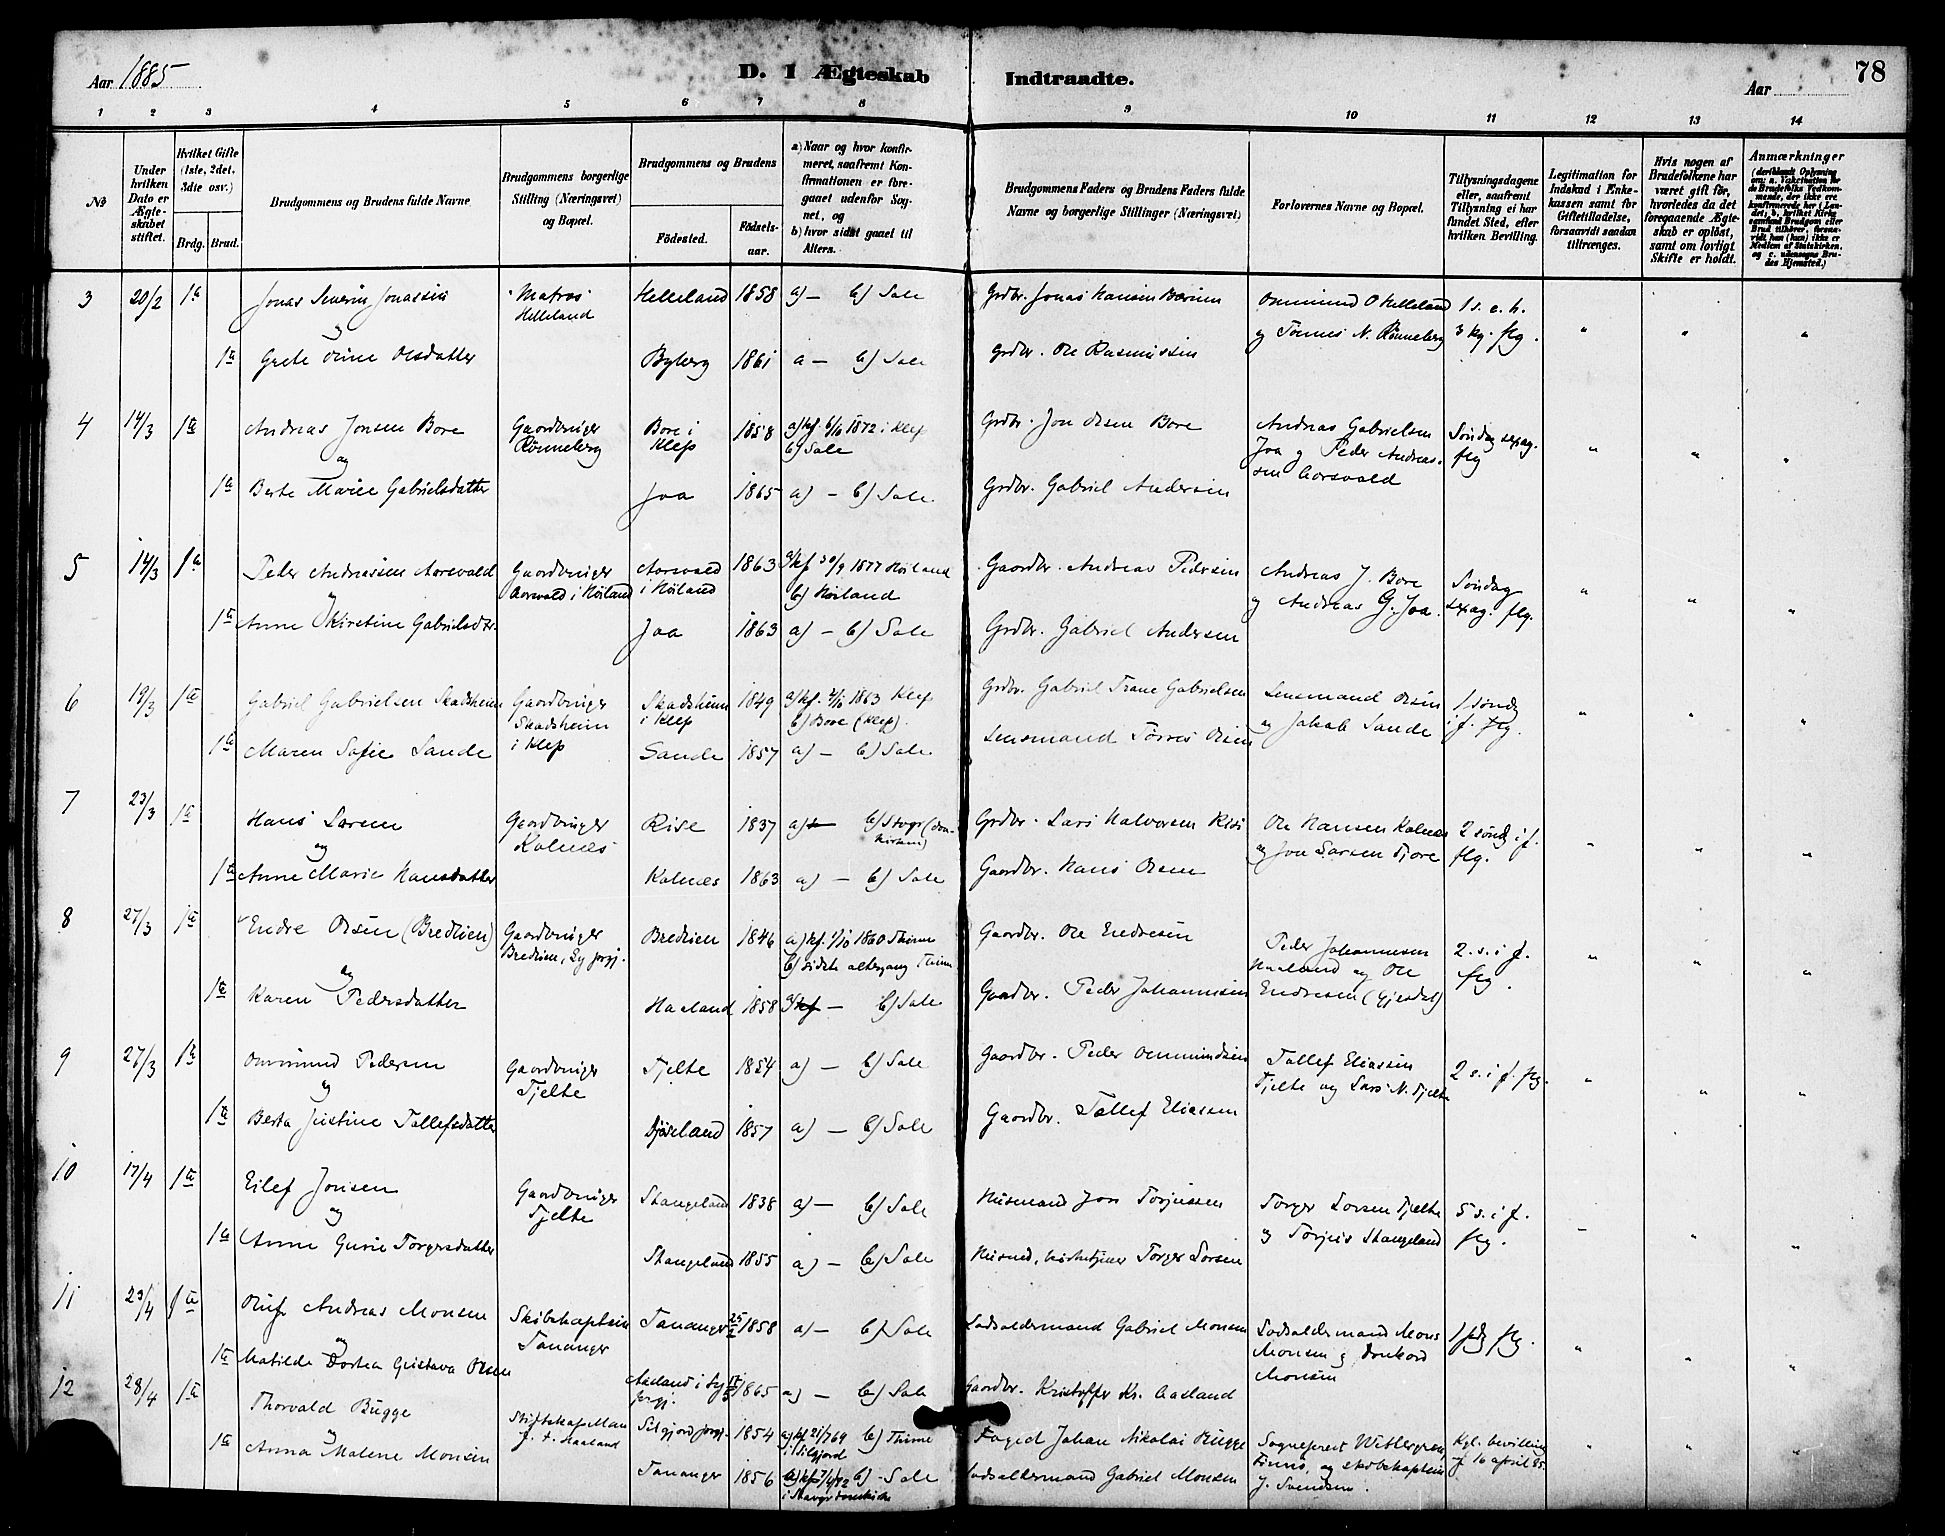 Aar 1885
D. 1 Ægteskab Indtraadte.
Aar
78
1 2 3 4 5 6 7 8 9 10 11 12 13 14
No
Under hvilken Dato er Ægteskabet stiftet.
Hvilket Gifte (1ste, 2det, 3die osv.)
Brdg. Brud.
Brudgommens og Brudens fulde Navne
Brudgommens borgerlige Stilling (Næringsvei) og Bopæl.
Brudgommens og Brudens
Fødested.
Fødselsaar.
a) Naar og hvor konfirmeret, saafremt Konfirmationen er foregaaet udenfor Sognet, og
b) hvor sidst gaaet til Alters.
Brudgommens Faders og Brudens Faders fulde Navne og borgerlige Stillinger (Næringsvei)
Forlovernes Navne og Bopæl.
Tillysningsdagene eller, saafremt Tillysning ei har fundet Sted, efter hvilken Bevilling.
Legitimation for Indskud i Enkekassen samt for Giftetilladelse, forsaavidt saadan tiltrænges.
Hvis nogen af Brudefolkene har været gift før, hvorledes da det foregaaende Ægteskab er opløst, samt om lovligt Skifte er holdt.
Anmærkninger
3 20/2 1ste Jonas Severin Jonassen Matros Helleland Helleland 1858 a) — b) Sole Grdbr. Jonas Hansen Ommund O Helleland 1 s. e. h.
og Tønnes N. Rønneberg 3 flg.
1ste Grete Oline Olsdatter Byberg 1861 a — b) Sole Grdbr. Ole Rasmussen
4 14/3 1ste Andreas Jonsen Bore Gaardbruger Rønneberg Bore i Klep 1858 a) kf. 6/10 1872 i Klep b) Sole Grdbr. Jon Olsen Bore Andreas Gabrielsen Joa og Peder Andreassen Aarsvold Søndag sexag. flg
og
1ste Berte Marie Gabrielsdatter Joa 1865 a) — b) Sole. Grdbr. Gabriel Andersen
5 14/3 1ste Peder Andreassen Aarsvold Gaardbruger Aarsvold i Høiland Aarsvold i Høiland 1863 a/ kf 30/9 1877 Høiland b) Høiland Gaardbr. Andreas Pedersen Andreas J. Bore og Andreas G. Joa. Søndag sexag. flg.
og
1ste Anne Kirstine Gabrielsdtr. Joa 1863 a) — b) Sole Grdbr. Gabriel Andersen
6 19/3 1ste Gabriel Gabrielsen Skadsheim Gaardbruger Skadsheim i Klep Skadsheim i Klep 1849 a/ kf. 1863 Klep b) Bore (Klep). Grdbr. Gabriel Trane Gabrielsen Lensmand Olsen og Jakob Sande 1 sønd i f. flg.
1ste Maren Sofie Sande Sande 1857 a) — b) Sole. Lensmand Tørres Olsen
7 23/3 1ste Hans Larsen Gaardbruger Kolnes Rise 1837 a) — b) Stvgr (domkirken) Grdbr. Lars Halvorsen Risi Ole Hansen Kolnes og Jon Larsen Fjore 2 sønd i f. flg.
og
1ste Anne Marie Hansdatter Kolnes 1863 a) — b) Sole Gaardbr. Hans Olsen
8 27/3 1ste Endre Olsen (Bredlien) Gaardbruger Bredlien, Ly prgj. Bredlien 1846 a) kf. 1/10 1860 Thime b) sidste altergang Thime Gaardbr. Ole Endresen Peder Johannesen Haaland og Ole Endresen (Gjesdal) 2. s. i f. flg.
og
1ste Karen Pedersdatter Haaland 1858 a/ kf — b) Sole Gaardbr. Peder Johannesen
9 27/3 1ste Ommund Pedersen Gaardbruger Tjelte Tjelte 1854 a) — b) Sole Gaardbr. Peder Ommundsen Tollef Eliassen Tjelte og Lars N. Tjelte 2 s. i f. flg.
og
1ste Berta Justine Tollefsdatter 1857 a) — b) Sole Gaardbr. Tollef Eliassen
10 17/4 1ste Eilef Jonsen Gaardbruger Tjelte Stangeland 1838 a) — b) Sole Husmand Jon Torjussen Torger Larsen Tjelte og Torjus Stangeland 5 s. i f. flg.
og
1ste Anne Gurie Torgersdatter Stangeland 1855 a) — b) Sole Husmd, kirketjener Torger Larsen
11 23/4 1ste Oluf Andreas Monsen Skibskaptein Tananger Tananger 25/2 1858 a) — b) Sole Lodsoldermand Gabriel Monsen Lodsoldermand Mons Monsen g Monsen flg.
og
1ste Matilde Dortea Gustava Olsen Aaland i Ly prgj. 1865 a) — b) Sole Gaardbr. Kristoffer Kr. Aasland
12 28/4 1ste Thorvald Bugge Stiftskapellan f. t. Haaland Siljord prgj. 1854 a) kf 21/7 69 i Siljord b) Thime Foged Johan Nikolai Bugge Sogneprest Wettergreen og skibskaptein J. Svendsen. Kgl. bevilling af 16 april 85.
og
1ste Anna Malene Monsen Tananger 1856 b) Sole i Stavgr domkirke Lodsoldermand Gabriel Monsen